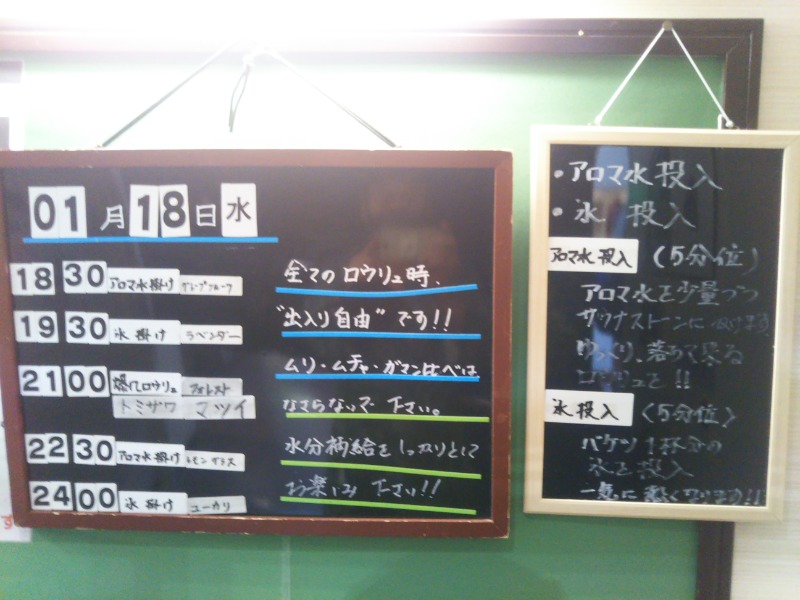 01月18日水
18 30 アロマ水掛け グレープフルーツ
19 30 氷掛け ラベンダー
21 00 爆化ロウリュ フォレスト
トミザワ マツイ
22 30 アロマ水掛け レモングラス
24 00 氷掛け ユーカリ
全てのロウリュ時、
"出入り自由"です!!
ムリ・ムチャ・ガマン比べは
なさらないで下さい。
水分補給をしっかりとして
お楽しみ下さい!!
・アロマ水投入
・氷投入
アロマ水投入 (5分位)
アロマ水を少量づつ
サウナストーンに
ゆっくり、落ちて来る
ロウリュを!!
氷投入 (5分位)
バケツ1杯分の
氷を投入
一気に熱くなります!!